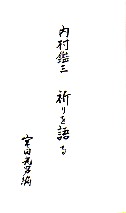 内村鑑三 祈りを語る
宮田光雄編